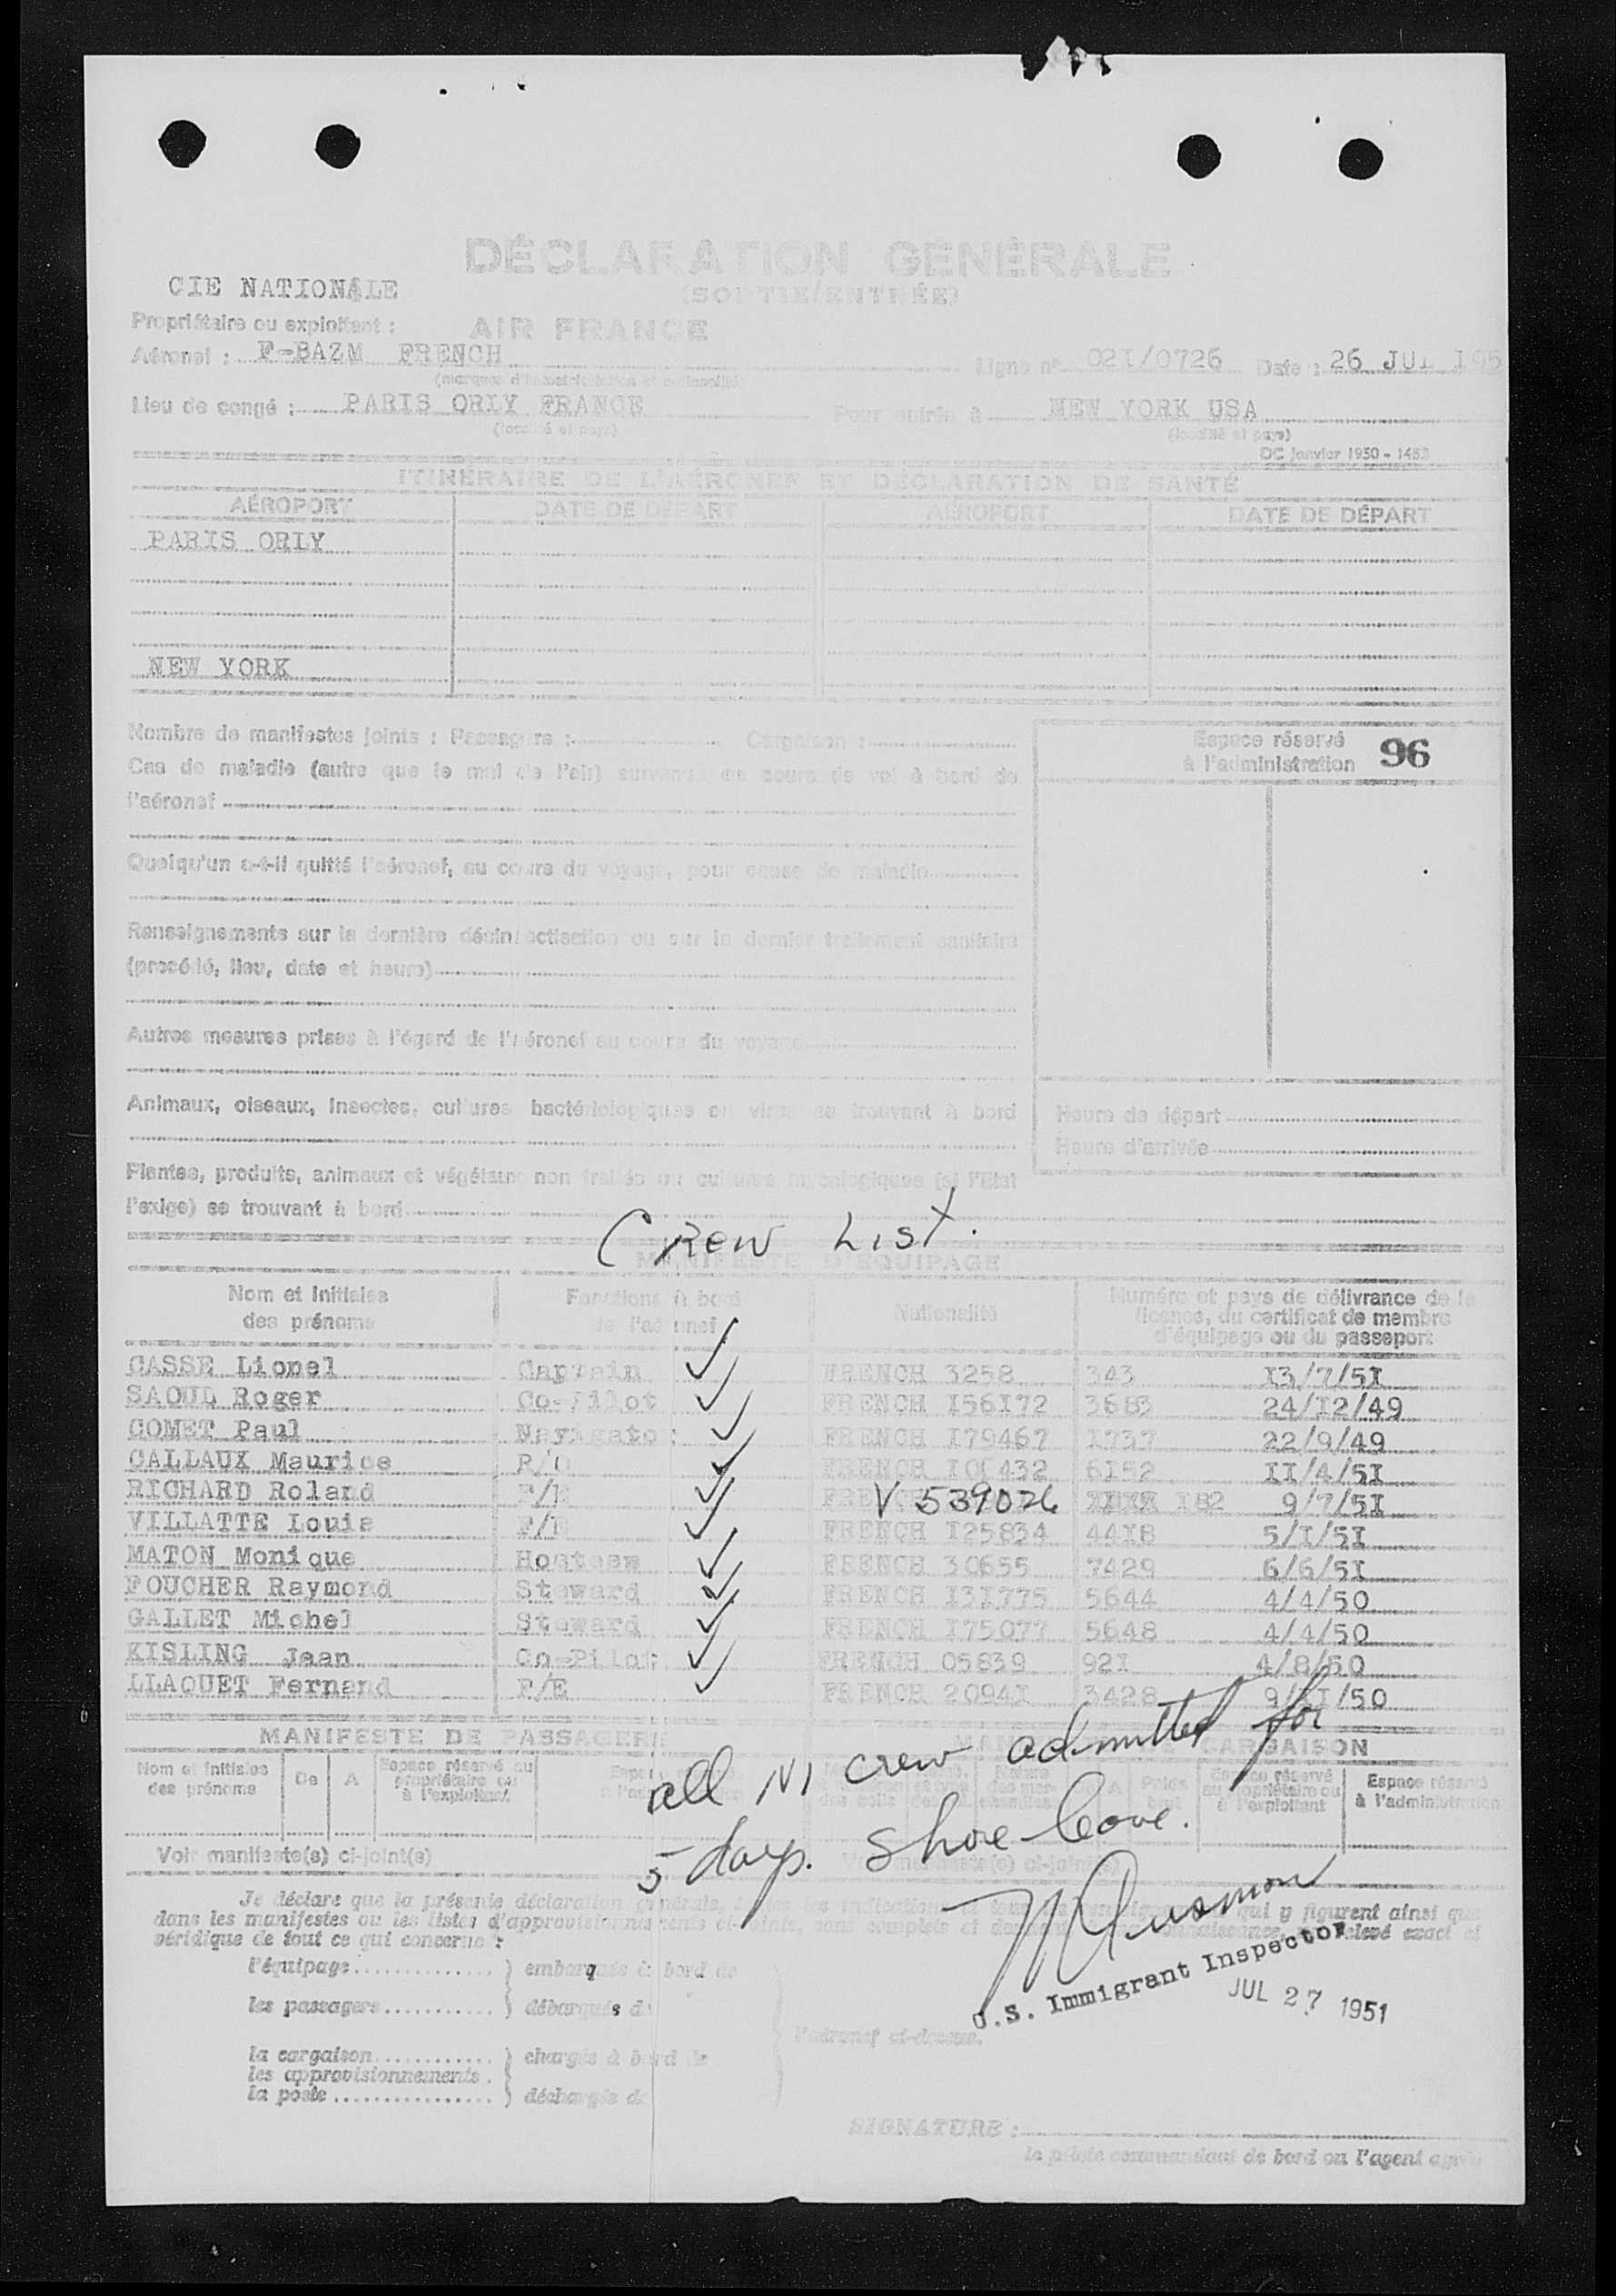 DÉCLARATION GÉNÉRALE
(SORTIE/ENTRÉE)
CIE NATIONALE
Propriétaire ou exploitant : AIR FRANCE
Aéronef : F-BAZM FRENCH Ligne n° 02I/0726 Date : 26 JUL I95
(marques d'immatriculation et nationalité)
Lieu de congé : PARIS ORLY FRANCE Pour entrée à NEW YORK USA
(localité et pays) (localité et pays)
DC Janvier 1950 -
ITINÉRAIRE DE L'AÉRONEF ET DÉCLARATION DE SANTÉ
AÉROPORT DATE DE DÉPART AÉROPORT DATE DE DÉPART
PARIS ORLY
NEW YORK
Nombre de manifestes joints : Passagers : Cargaison :
Espace réservé à l'administration 96
Cas de maladie (autre que le mal de l'air) survenus en cours de vol à bord de
l'aéronef
Quelqu'un a-t-il quitté l'aéronef, au cours du voyage, pour cause de maladie
Renseignements sur la dernière désinsectisation ou sur le dernier traitement sanitaire
(procédé, lieu, date et heure)
Autres mesures prises à l'égard de l'aéronef au cours du voyage
Animaux, oiseaux, insectes, cultures bactériologiques ou virus se trouvant à bord
Heure de départ
Heure d'arrivée
Plantes, produits, animaux et végétaux non traités ou cultures mycologiques (si l'Etat
l'exige) se trouvant à bord
Crew List.
MANIFESTE D'ÉQUIPAGE
Nom et initiales des prénoms Fonctions à bord de l'aéronef Nationalité Numéro et pays de délivrance de la licence, du certificat de membre d'équipage ou du passeport
CASSE Lionel Captain ✓ FRENCH 3258 343 I3/7/5I
SAOUL Roger Co-Pilot ✓ FRENCH I56I72 3683 24/I2/49
COMET Paul Navigator ✓ FRENCH I79467 I737 22/9/49
CALLAUX Maurice R/O ✓ FRENCH 432 6I52 II/4/5I
RICHARD Roland F/E ✓ FRENCH V 539026 I82 9/7/5I
VILLATTE Louis F/E ✓ FRENCH I25834 44I8 5/I/5I
MATON Monique Hostess ✓ FRENCH 30655 7429 6/6/5I
FOUCHER Raymond Steward ✓ FRENCH I3I775 5644 4/4/50
GALLET Michel Steward ✓ FRENCH I75077 5648 4/4/50
KISLING Jean Co-Pilot ✓ FRENCH 05839 92I 4/8/50
LLAOUET Fernand F/E ✓ FRENCH 2094I 3428 9/II/50
MANIFESTE DE PASSAGERS CARGAISON
Nom et initiales des prénoms De A Espace réservé au propriétaire ou à l'exploitant Poids Espace réservé au propriétaire ou à l'exploitant Espace réservé à l'administration
all crew admitted for
5 days. shore leave.
Voir manifeste(s) ci-joint(s) Voir manifeste(s) ci-joint(s)
Je déclare que la présente déclaration générale, qui y figurent ainsi que
dans les manifestes ou les listes d'approvisionnements ci-joints, sont complets et relevé exact et
véridique de tout ce qui concerne :
l'équipage embarqués à bord de
les passagers débarqués de
U.S. Immigrant Inspector
JUL 27 1951
l'aéronef ci-dessus.
la cargaison chargés à bord de
les approvisionnements
la poste déchargés de
SIGNATURE :
le pilote commandant de bord ou l'agent agréé